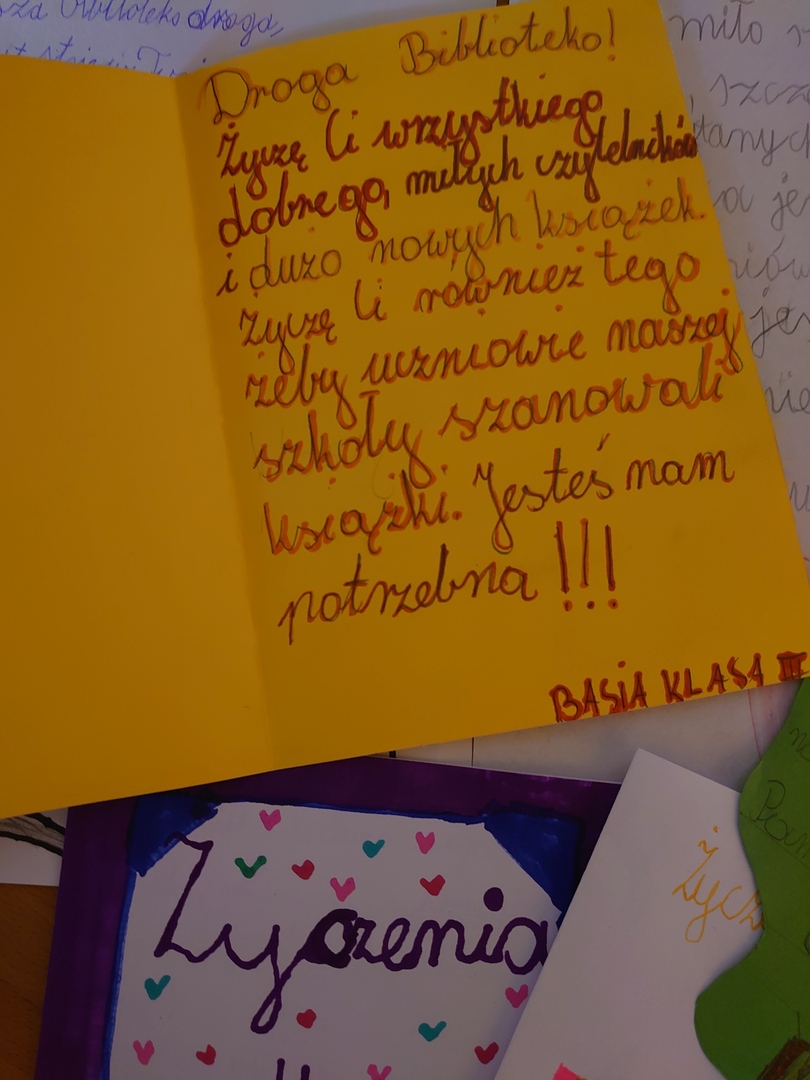 droga,
Droga Biblioteko!
Życzę Ci wrzystkiego
dobrego, miłych czytelników
i dużo nowych książek.
Życzę Ci również tego
żeby uczniowie naszej
szkoły szanowali
książki. Jesteś nam
potrzebna !!!
BASIA KLASA III
miło
Życzenia